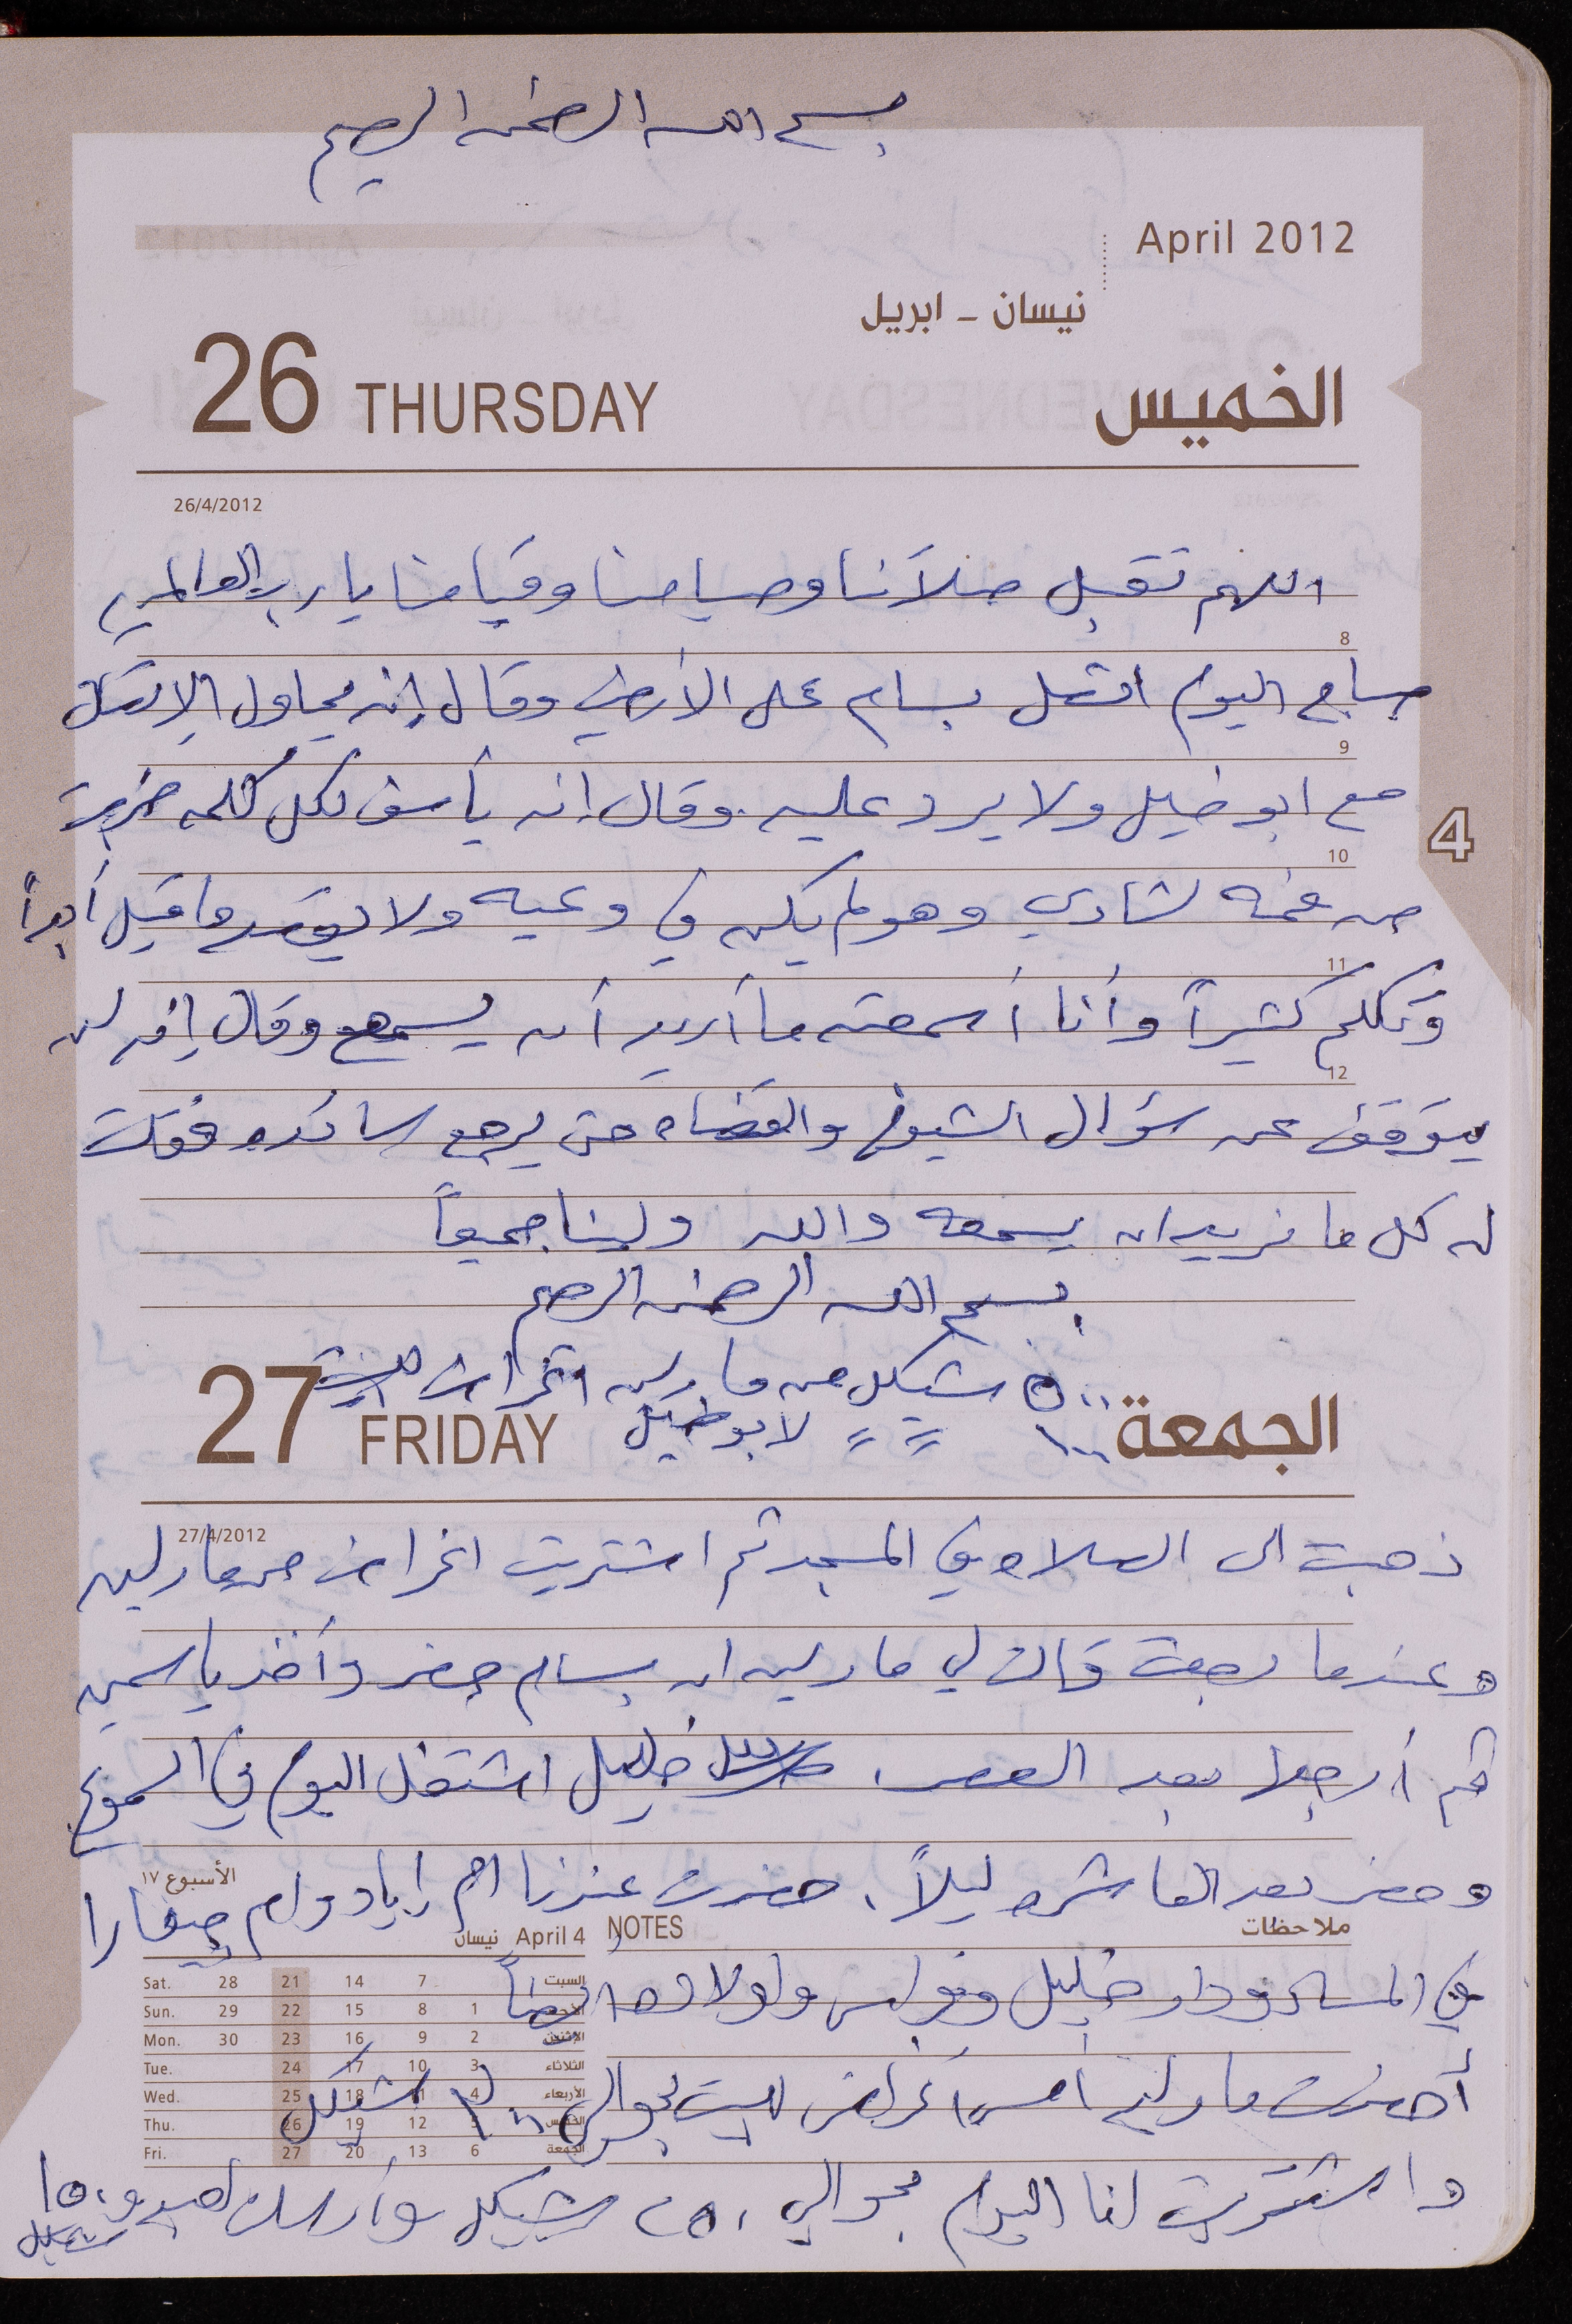 بسم الله الرحمن الرحيم
April 2012
نيسان - ابريل
26 THURSDAY الخميس
26/4/2012
اللهم تقبل صلاتنا وصيامنا وقيامنا يا رب العالمين
8
صباح اليوم اتصل بسام على الأرضي وقال إنه يحاول الإتصال
9
مع ابو خليل ولا يرد عليه. وقال انه يأسف لكل كلمه خرجت
10
4
من فمه لشادي وهو لم يكن في وعيه ولا يقصد ما قيل أبداً
11
وتكلم كثيراً وأنا أسمعته ما أريد أن يسمع وقال إنه لن
12
يتوقف عن سؤال الشيوخ والقضاه حتى يرجع ساندره فقلت
له كل ما نريد ان يسمعه والله ولينا جميعاً
بسم الله الرحمن الرحيم
٥٠٠ شيكل من مارلين اغراض للبيت
١٠٠ = = لابو خليل
27 FRIDAY الجمعة
27/4/2012
ذهبت الى الصلاه في المسجد ثم اشتريت اغراض مع مارلين
وعندما رجعت قالت لي مارلين ان بسام حضر وأخذ ياسمين
ثم أرجعها بعد العصر. خليل اشتغل اليوم في السموع
وحضر بعد العاشره ليلاً. حضرت عندنا ام إياد وام
الأسبوع ١٧
في المساء ودار خليل وفراس واولادهم ايضاً
NOTES ملاحظات
April 4 نيسان
Sat. 28 21 14 7 السبت
Sun. 29 22 15 8 1 الأحد
Mon. 30 23 16 9 2 الاثنين
Tue. 24 17 10 3 الثلاثاء
Wed. 25 18 11 4 الأربعاء
Thu. 26 19 12 5 الخميس
Fri. 27 20 13 6 الجمعة
أحضرت مارلين أمس أغراض للبيت بحوالي ٣٠٠ شيكل
واشترت لنا اليوم بحوالي ٢٥٠ شيكل وأرسلت ١٥٠
شيكل